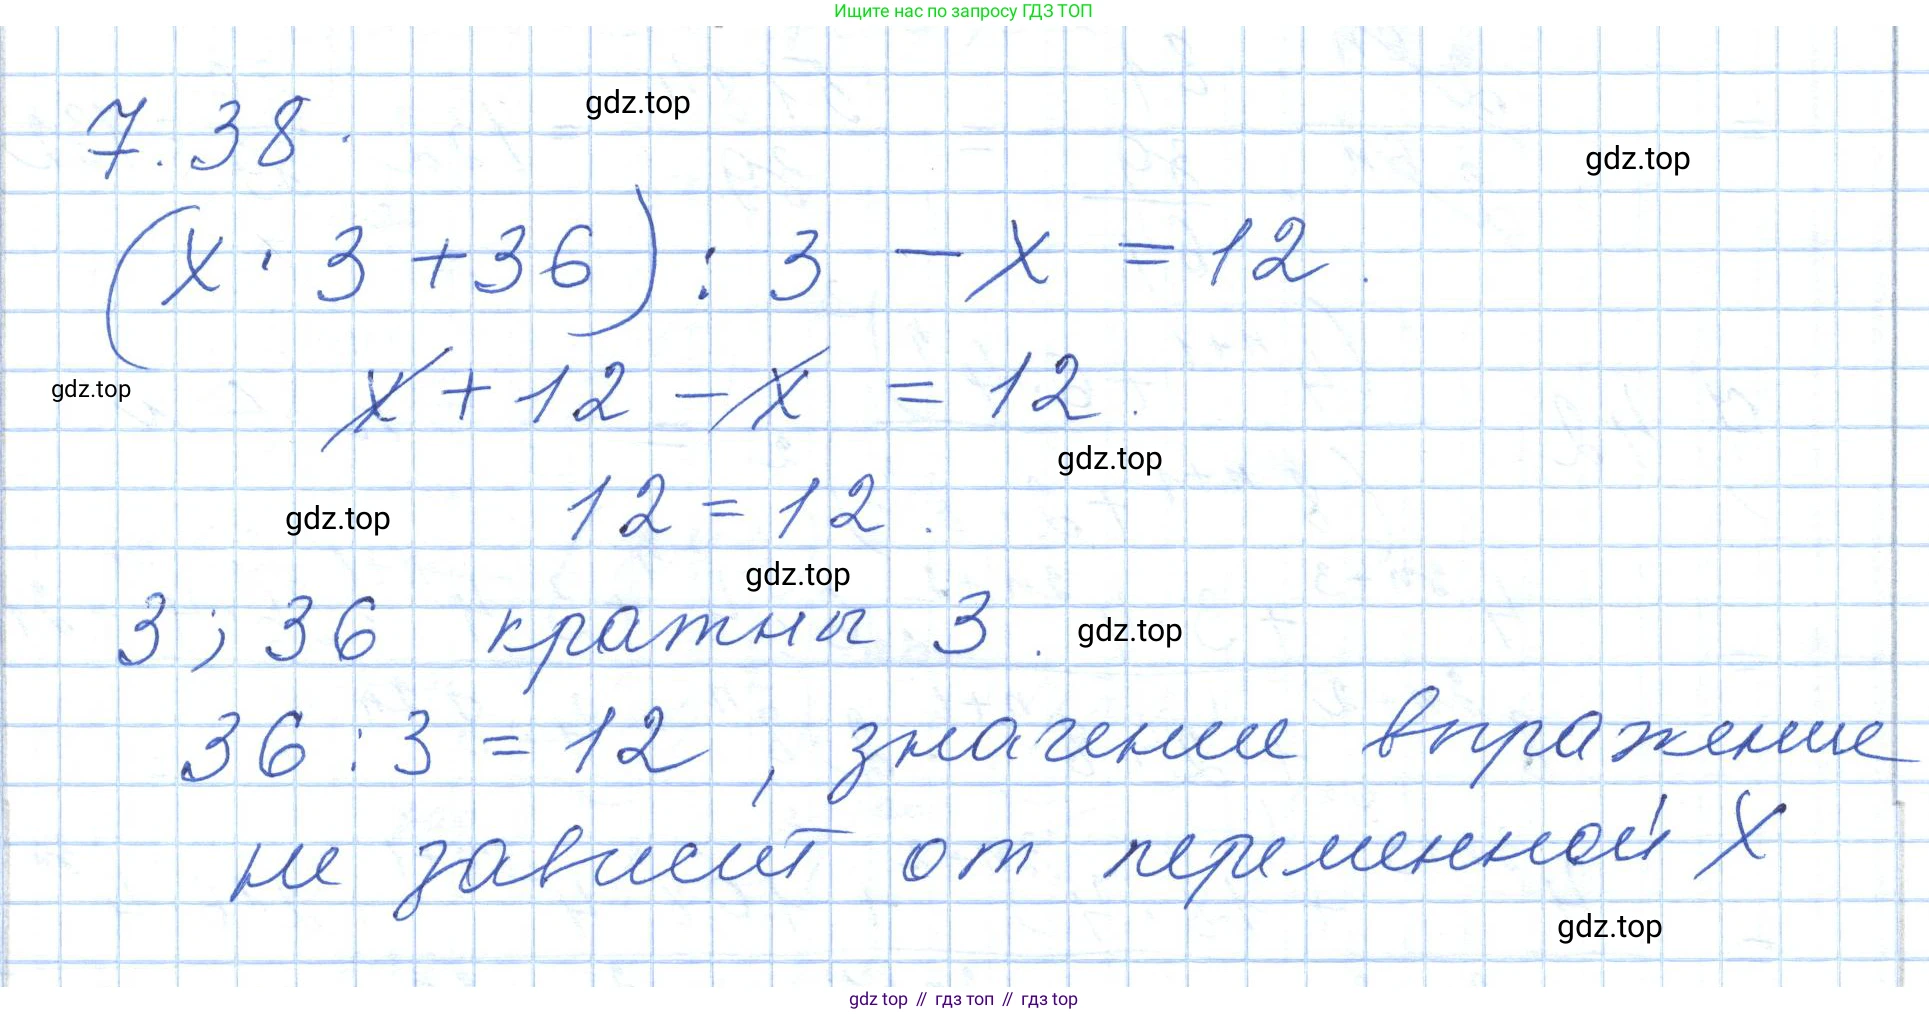 Ищите нас по запросу ГДЗ ТОП
7.38.
gdz.top
gdz.top
(x · 3 + 36) : 3 - x = 12.
gdz.top
x + 12 - x = 12.
gdz.top
12 = 12.
gdz.top
gdz.top
3; 36 кратны 3.
gdz.top
36 : 3 = 12, значение выражение
не зависит от переменной x
gdz.top
gdz top // гдз топ // гдз top